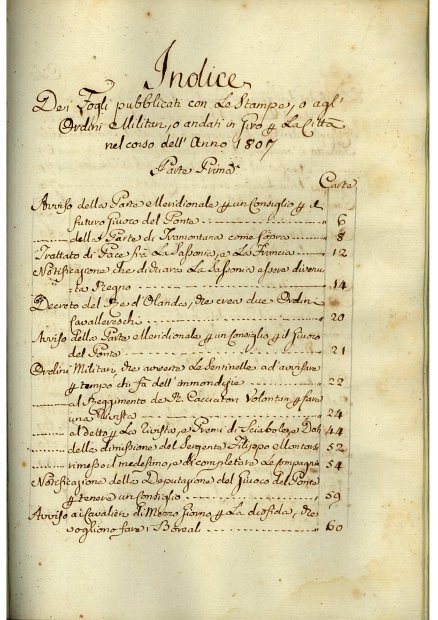 Indice
Dei Fogli pubblicati con Le Stampe, o agl'
Ordini Militari, o andati in Giro p La Città
nel corso dell' Anno 1807
Parte Prima
Carte
Avviso della Parte Meridionale p un Consiglio p il
futuro Giuoco del Ponte 6
della Parte di Tramontana come sopra 8
Trattato di Pace fra La Sassonia, e La Francia 12
Notificazione che dichiara La Sassonia essere divenu
ta Regno 14
Decreto del Re d'Olanda, che crea due Ordini
Cavallereschi 20
Avviso della Parte Meridionale p un Consiglio p il Giuoco
del Ponte 21
Ordini Militari, che avverte Le Sentinelle ad avvisare
p tempo chi fa dell' immondizie 22
al Reggimento de Cacciatori Volontari p fare
una Rivista 24
al detto p La Rivista, e Premi di Sciabole 44
della dimissione del Sergente Filippo 52
rimesso il medesimo, e completare Le Compagnie 54
Notificazione della Deputazione del Giuoco del Ponte
p tenere un Consiglio 59
Avviso ai Cavalieri di Mezzo Giorno p La disfida, che
vogliono fare i Boreali 60